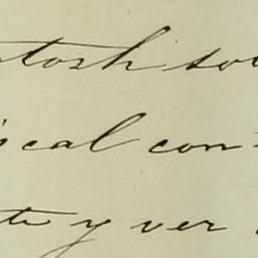 ntosh sou
iscal con-
te y ver